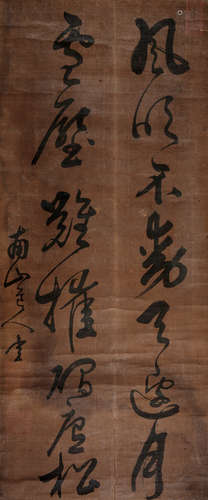 風吹不動天邊月
雪壓難摧磵底松
南山老人書